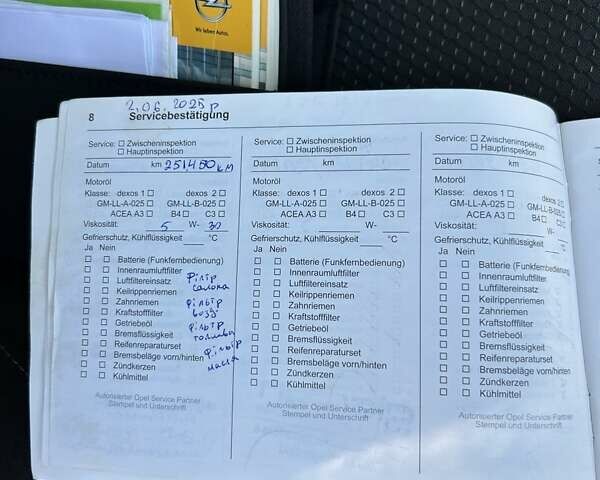 Wir leben Autos.
2.06.2025р
8 Servicebestätigung
Service: Zwischeninspektion
Hauptinspektion
Datum km 251450 км
Motoröl
Klasse: dexos 1 dexos 2
GM-LL-A-025 GM-LL-B-025
ACEA A3 B4 C3
Viskosität: 5 W- 30
Gefrierschutz, Kühlflüssigkeit °C
Ja Nein
Batterie (Funkfernbedienung)
Innenraumluftfilter
Luftfiltereinsatz
Keilrippenriemen
Zahnriemen
Kraftstofffilter
Getriebeöl
Bremsflüssigkeit
Reifenreparaturset
Bremsbeläge vorn/hinten
Zündkerzen
Kühlmittel
фільтр
салона
фільтр
возд
фільтр
фільтр
масла
Autorisierter Opel Service Partner
Stempel und Unterschrift
Service: Zwischeninspektion
Hauptinspektion
Datum km
Motoröl
Klasse: dexos 1 dexos 2
GM-LL-A-025 GM-LL-B-025
ACEA A3 B4 C3
Viskosität: W-
Gefrierschutz, Kühlflüssigkeit °C
Ja Nein
Batterie (Funkfernbedienung)
Innenraumluftfilter
Luftfiltereinsatz
Keilrippenriemen
Zahnriemen
Kraftstofffilter
Getriebeöl
Bremsflüssigkeit
Reifenreparaturset
Bremsbeläge vorn/hinten
Zündkerzen
Kühlmittel
Autorisierter Opel Service Partner
Stempel und Unterschrift
Service: Zwischeninspektion
Hauptinspektion
Datum km
Motoröl
Klasse: dexos 1 dexos 2
GM-LL-A-025 GM-LL-B-025
ACEA A3 B4 C3
Viskosität: W-
Gefrierschutz, Kühlflüssigkeit °C
Ja Nein
Batterie (Funkfernbedienung)
Innenraumluftfilter
Luftfiltereinsatz
Keilrippenriemen
Zahnriemen
Kraftstofffilter
Getriebeöl
Bremsflüssigkeit
Reifenreparaturset
Bremsbeläge vorn/hinten
Zündkerzen
Kühlmittel
Autorisierter Opel Service Partner
Stempel und Unterschrift